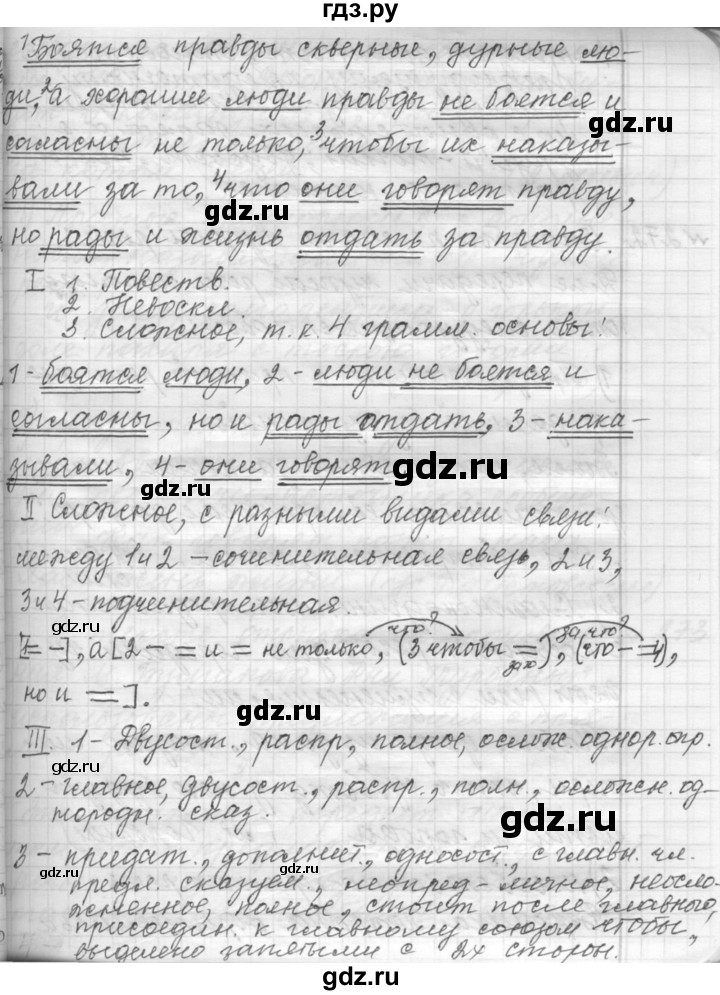 гдз.ру
¹Боятся правды скверные, дурные лю-
ди, ²а хорошие люди правды не боятся и
согласны не только, ³чтобы их наказы-
вали за то, ⁴что они говорят правду,
gdz.ru gdz.ru
но рады и жизнь отдать за правду.
I 1. Повеств.
2. Невоскл.
3. Сложное, т.к. 4 грамм. основы:
1 - боятся люди, 2 - люди не боятся и
согласны, но и рады отдать, 3 - нака-
зывали, 4 - они говорят
gdz.ru gdz.ru
II Сложное, с разными видами связи:
между 1 и 2 - сочинительная связь, 2 и 3,
3 и 4 - подчинительная.
gdz.ru что? за что? gdz.ru
[1= -], а [2 - = и = не только, (3 чтобы =), (что - = 4),
но и =].
gdz.ru
III. 1 - Двусост., распр., полное, ослож. однор. опр.
2 - главное, двусост., распр., полн., осложн. од-
нородн. сказ.
gdz.ru
3 - придат., дополнит., односост., с главн. чл.
предл. сказуем., неопред-личное, неосло-
жненное, полное, стоит после главного,
присоедин. к главному союзом чтобы,
выделено запятыми с 2х сторон.
gdz.ru gdz.ru